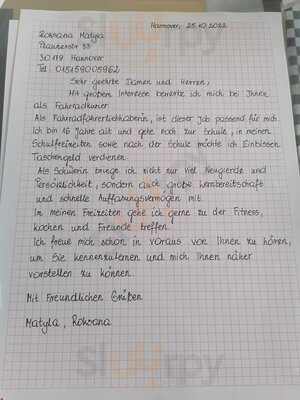 Hannover, 25.10.2022
Roksana Matyla
30179 Hannover
Tel: 015159005962
Sehr geehrte Damen und Herren,
Mit großem Interesse bewerbe ich mich bei Ihnen
als Fahrradkurier.
Als Fahrradfahrerliebhaberin, ist dieser Job passend für mich.
Ich bin 16 Jahre alt und gehe noch zur Schule, in meinen
Schulfreizeiten sowie nach der Schule möchte ich Einbissen
Taschengeld verdienen.
Als Schülerin bringe ich nicht nur viel Neugierde und
Persönlichkeit, sondern auch große Lernbereitschaft
und schnelle Auffassungsvermögen mit.
In meinen Freizeiten gehe ich gerne zu der Fitness,
kochen und Freunde treffen.
Ich freue mich schon in voraus von Ihnen zu hören,
um Sie kennenzulernen und mich Ihnen näher
vorstellen zu können.
Mit Freundlichen Grüßen
Matyla, Roksana
Sluurpy